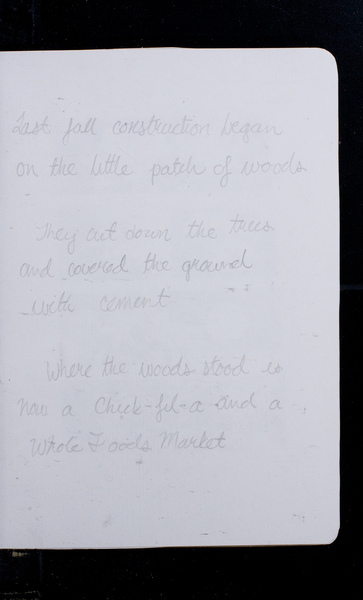 Last fall construction began
on the little patch of woods
They cut down the trees
and covered the ground
with cement
Where the woods stood is
now a Chick-fil-a and a
Whole Foods Market